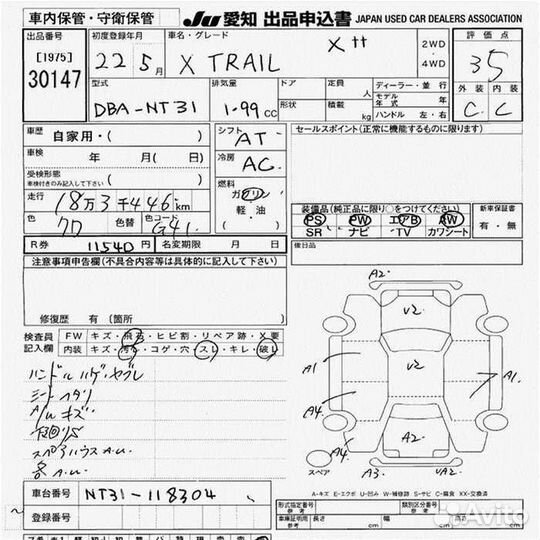 車内保管・守衛保管 JU 愛知 出品申込書 JAPAN USED CAR DEALERS ASSOCIATION
出品番号 初度登録年月 車名・グレード 2WD・4WD 評価点
[1975] 30147 22年5月 X TRAIL Xtt 35
型式 排気量 ドア形状 定員 人 積載 kg ディーラー・並行 モデル年式 年 ハンドル 左・右 外装 内装
DBA-NT31 1.99cc C C
車歴 自家用・( ) シフト AT セールスポイント(正常に機能するものに限ります)
車検 年 月(日) 冷房 AC
受検形態 車検付きのみ記入して下さい ( )
走行 18万3千446km 燃料 ガソリン・軽油・( )
色 クロ 色替 色コード G41
装備品(純正品に限り○をつけてください) 新車保証書
PS PW エアB AW 有・無
SR ナビ TV カワシート
R券 11540円 名変期限 月 日 後日品
注意事項申告欄(不具合内容等は具体的に記入して下さい)
修復歴 有(箇所 )
検査員記入欄 FW キズ・飛石・ヒビ割・リペア跡・X要
内装 キズ・汚れ・コゲ・穴・スレ・キレ・破レ
ハンドルハゲ・ヤブレ
シートヘタリ
A/Wキズ
下回りS
スペアハウスA.U.
A.U.
A2
V2
A1 V2 A1
A4
A2
A4 A3 VA2
スペア
A-キズ E-エクボ U-凹み W-補修跡 S-サビ C-腐食 XX-交換済
車台番号 NT31-118304
登録番号
形式指定番号 参考 類別区分番号 参考
車庫証明用参考 長さ cm 幅 cm 高さ cm
Avito